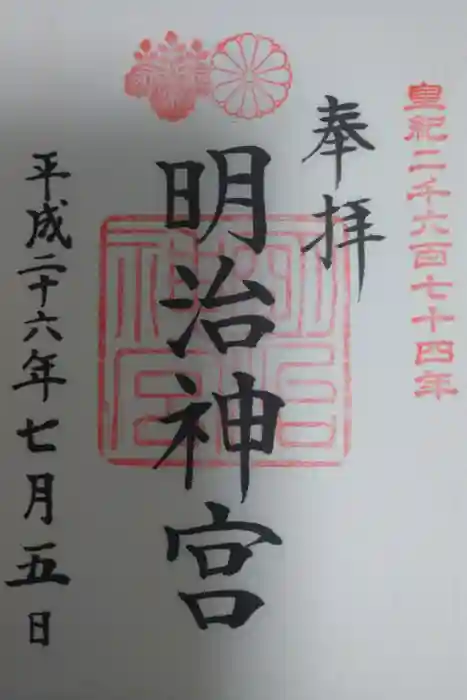 皇紀二千六百七十四年
奉拝
明治神宮
平成二十六年七月五日